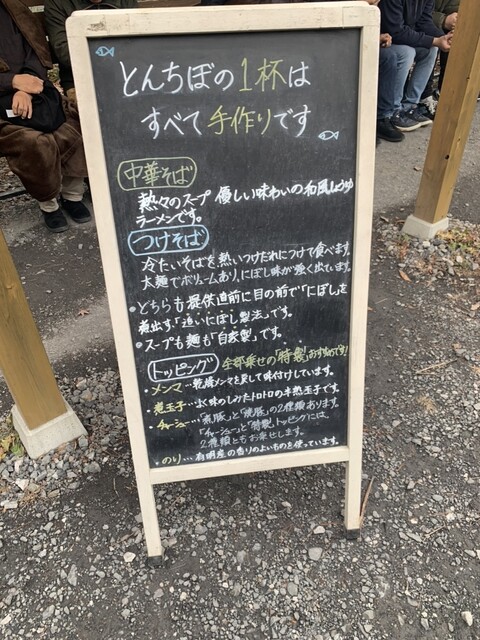 とんちぼの1杯は
すべて手作りです
中華そば
熱々のスープ 優しい味わいの和風しょうゆ
ラーメンです。
つけそば
冷たいそばを熱いつけだれにつけて食べます。
太麺でボリュームあり、にぼし味が強く出ています。
・どちらも提供直前に目の前で「にぼし」を
煮出す「追いにぼし製法」です。
・スープも麺も「自家製」です。
トッピング 全部乗せの「特製」おすすめです!
メンマ…乾燥メンマを戻して味付けしています。
・煮玉子…よく味のしみたトロトロの半熟玉子です。
・チャーシュー…「煮豚」と「焼豚」の2種類あります。
「チャーシュー」と「特製」トッピングには、
2種類ともお乗せします。
・のり…有明産の香りのよいものを使っています。